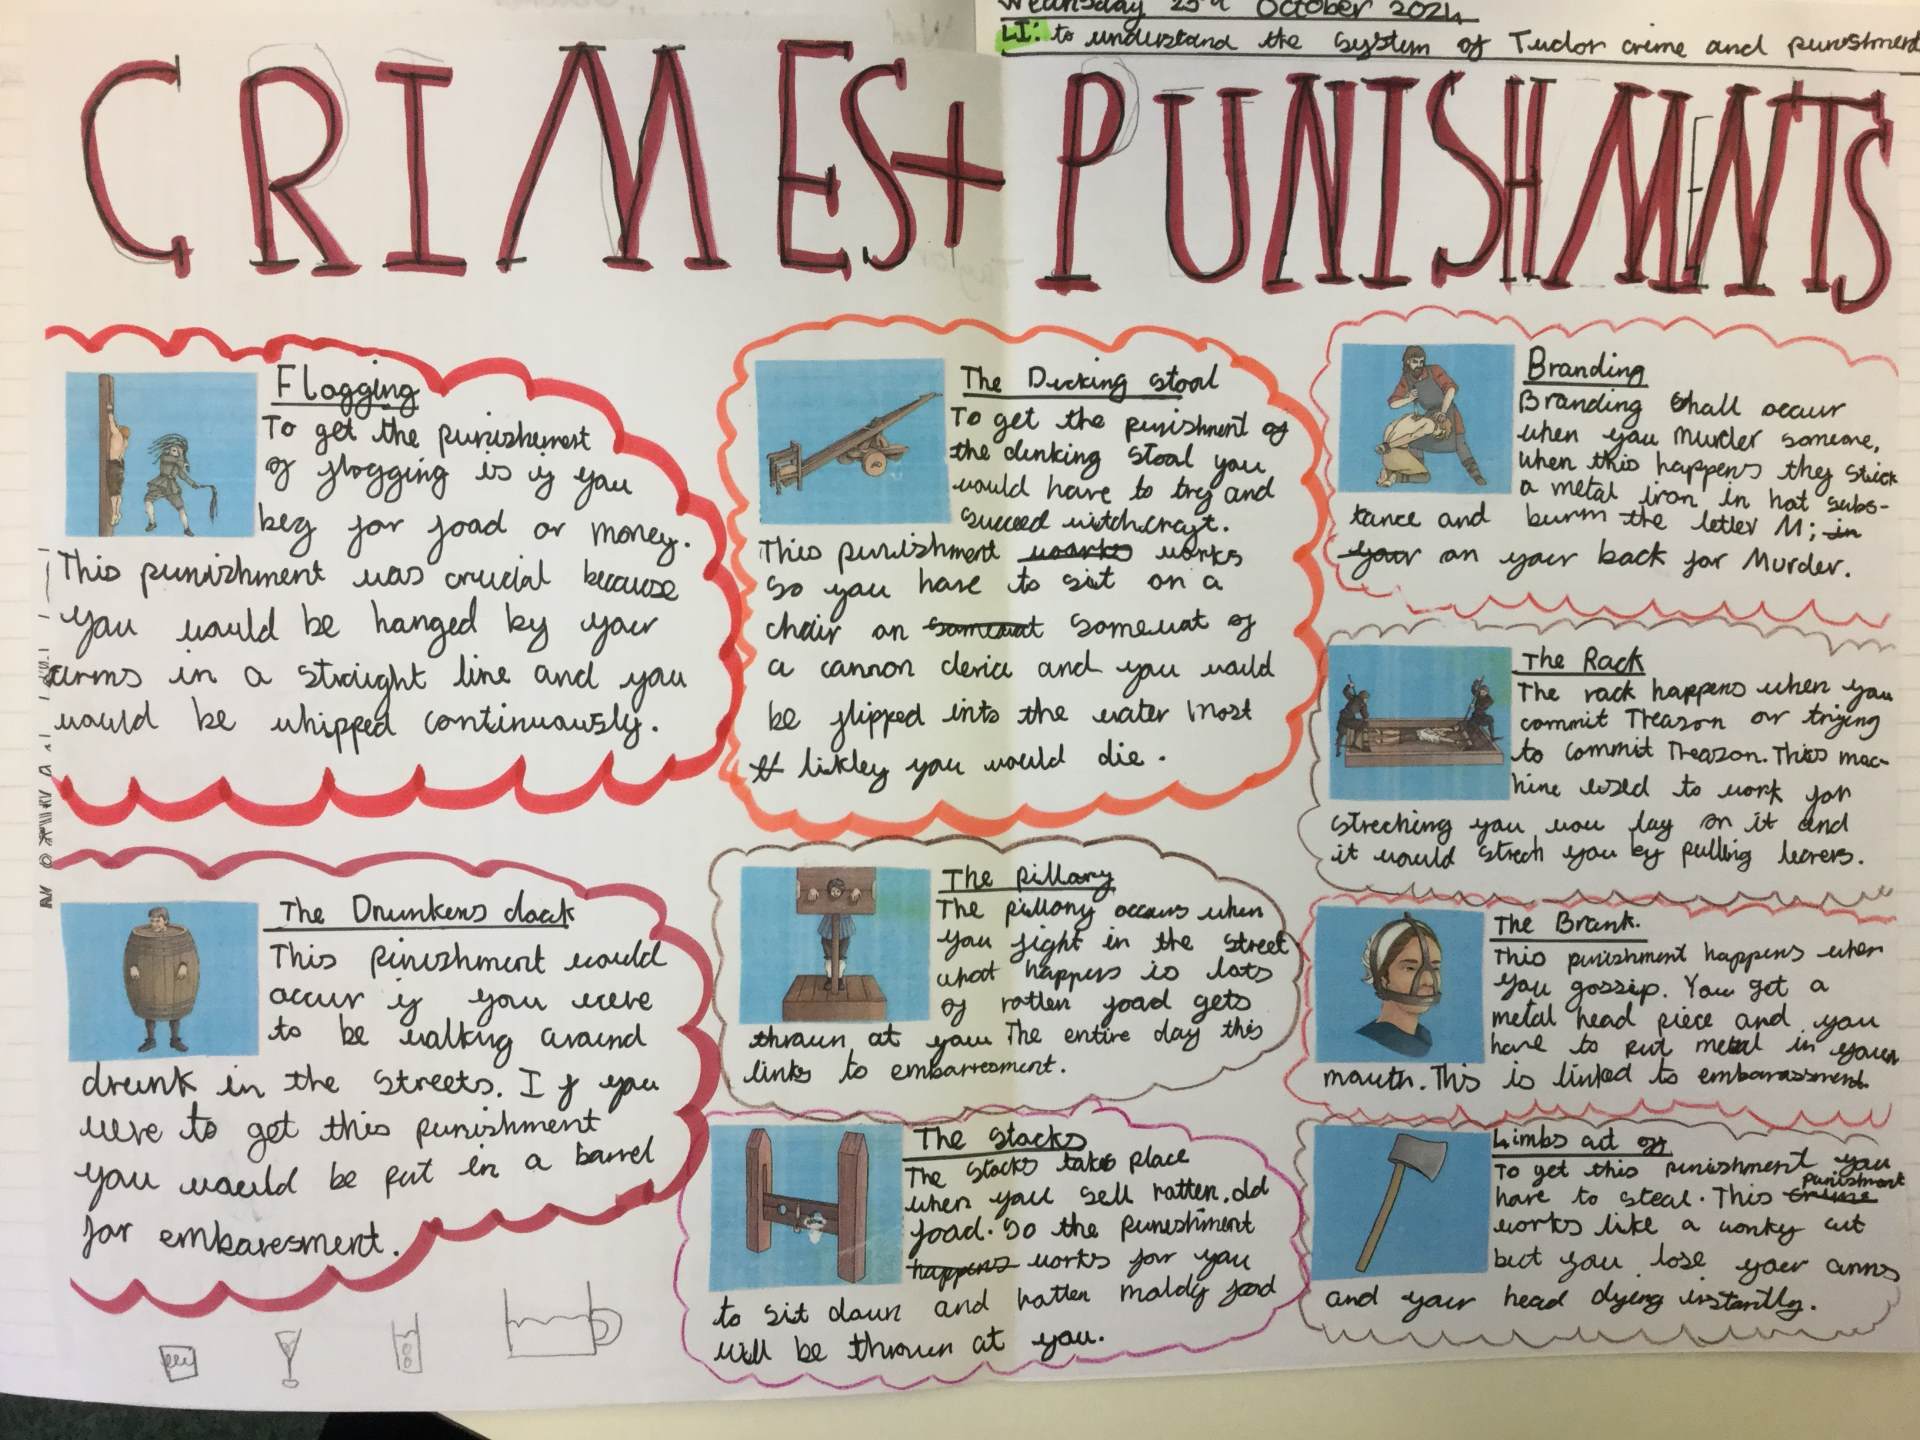 Wednesday 23rd October 2024
LI: to understand the system of Tudor crime and punishment
CRIMES+ PUNISHMENTS
Flogging
To get the punishement
of flogging is if you
beg for food or money.
This punishment was crucial because
you would be hanged by your
arms in a straight line and you
would be whipped continuously.
The Drunkens cloak
This pinishment would
occur if you were
to be walking around
drunk in the streets. If you
were to get this punishment
you would be put in a barrel
for embaresment.
The Ducking stool
To get the punishment of
the dunking stool you
would have to try and
succeed witchcrayt.
This punishment works works
so you have to sit on a
chair on somewat somewat of
a cannon device and you would
be flipped into the water most
tt likley you would die.
The pillary
The pillory occurs when
you fight in the street
what happens is lots
of rotten food gets
thrown at you. The entire day this
links to embarresment.
The stocks
The stocks takes place
when you sell rotten, old
food. So the punishment
happens works for you
to sit down and rotten moldy food
will be thrown at you.
Branding
Branding shall occur
when you murder someone,
when this happens they stick
a metal iron in hot subs-
tance and burn the letter M; in
your on your back for Murder.
The Rack
The rack happens when you
commit Treason or trying
to commit Treason. This mac-
hine used to work for
streching you you lay on it and
it would strech you by pulling leavers.
The Brank.
This punishment happens when
you gossip. You get a
metal head piece and you
have to put metal in your
mouth. This is linked to embarassment.
Limbs cut off
To get this punishment you
have to steal. This crime punishment
works like a wonky cut
but you lose your arms
and your head dying instantly.